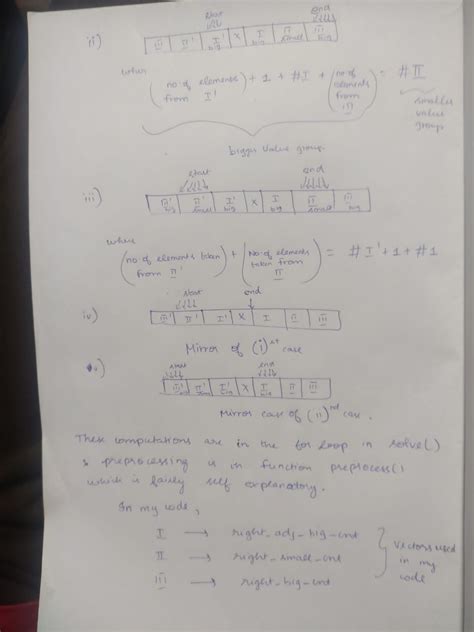 start end
ii) III' II' I' big X I big II small III big
when (no of elements from I') + 1 + #I + (no of elements from III) = #II
smaller value group
bigger value group
start end
iii) III' big II' small I' big X I big II small III big
when (no of elements taken from II') + (No of elements taken from II) = #I' + 1 + #I
start end
iv) III' II' I' X I II III
Mirror of (i)st case
start end
v) III' II' I' big X I big II III
Mirror case of (ii)nd case.
These computations are in the for loop in solve()
& preprocessing is in function preprocess()
which is fairly self explanatory.
In my code,
I → right_adj_big_cnt
II → right_small_cnt
III → right_big_cnt
Vectors used
in my
code